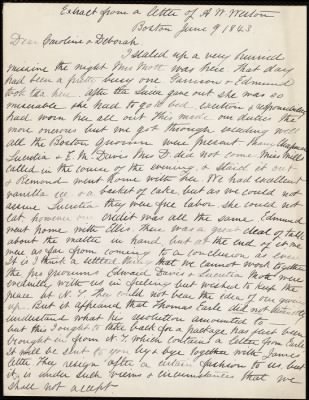 Extract from a letter of A W Weston
Boston June 9 1843
Dear Caroline & Deborah
I sealed up a very hurried
missive the night Mrs Mott was here that day
had been a pretty busy one Garrison & Edmund
took tea here after the Luca gave out she was so
miserable she had to go to bed exertion &
had worn her all out This made our duties the
more onerous but we got through needing well
all the Boston quorum were present Mary Chapman
Lucretia & E. M. Davis Mrs D. did not come Miss
called in the course of the evening, & staid at
& Remond went home with her We had excellent
vanilla ice & a basket of cake but as we could not
assure Lucretia they were free labor she could not
eat however our credit was all the same Edmund
went home with Ellis. There was a great deal of talk
about the matter in hand, but at the end of it we
were as far from coming to a conclusion as ever
It is I think a settled thing that we cannot work together
the pro quorums Edward Davis & Lucretia Mott were
evidently with us in feeling but wished to keep the
peace at N. Y. They could not bear the idea of our giving
up. But it appeared that Thomas Earle did not
understand what his resolution amounted to
but this I ought to take back for a package has just been
brought in from N Y which contained a letter from Earle
It will be sent to you by & bye together with James
letter They resign after a certain fashion to us, but
it is under such terms & circumstances that we
shall not accept